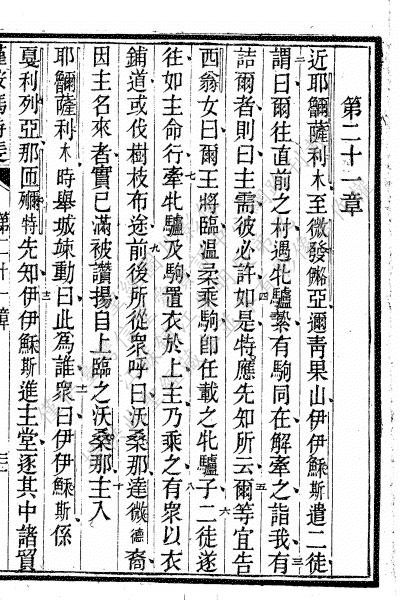 第二十一章
近耶薩利木至微發亞邇靑果山伊伊穌斯遣二徒
謂曰爾往直前之村遇牝驢縶有駒同在解牽之詣我有
詰爾者則曰主需彼必許如是特應先知所云爾等宜告
西翁女曰爾王將臨溫柔乘駒卽任載之牝驢子二徒遂
往如主命行牽牝驢及駒置衣於上主乃乘之有衆以衣
鋪道或伐樹枝布途前後所從衆呼曰沃桑那達微德裔
因主名來者實已滿被讚揚自上臨之沃桑那主入
耶薩利木時舉城竦動曰此爲誰衆曰伊伊穌斯係
戛利列亞那匝特先知伊伊穌斯進主堂逐其中諸貿
第二十一章